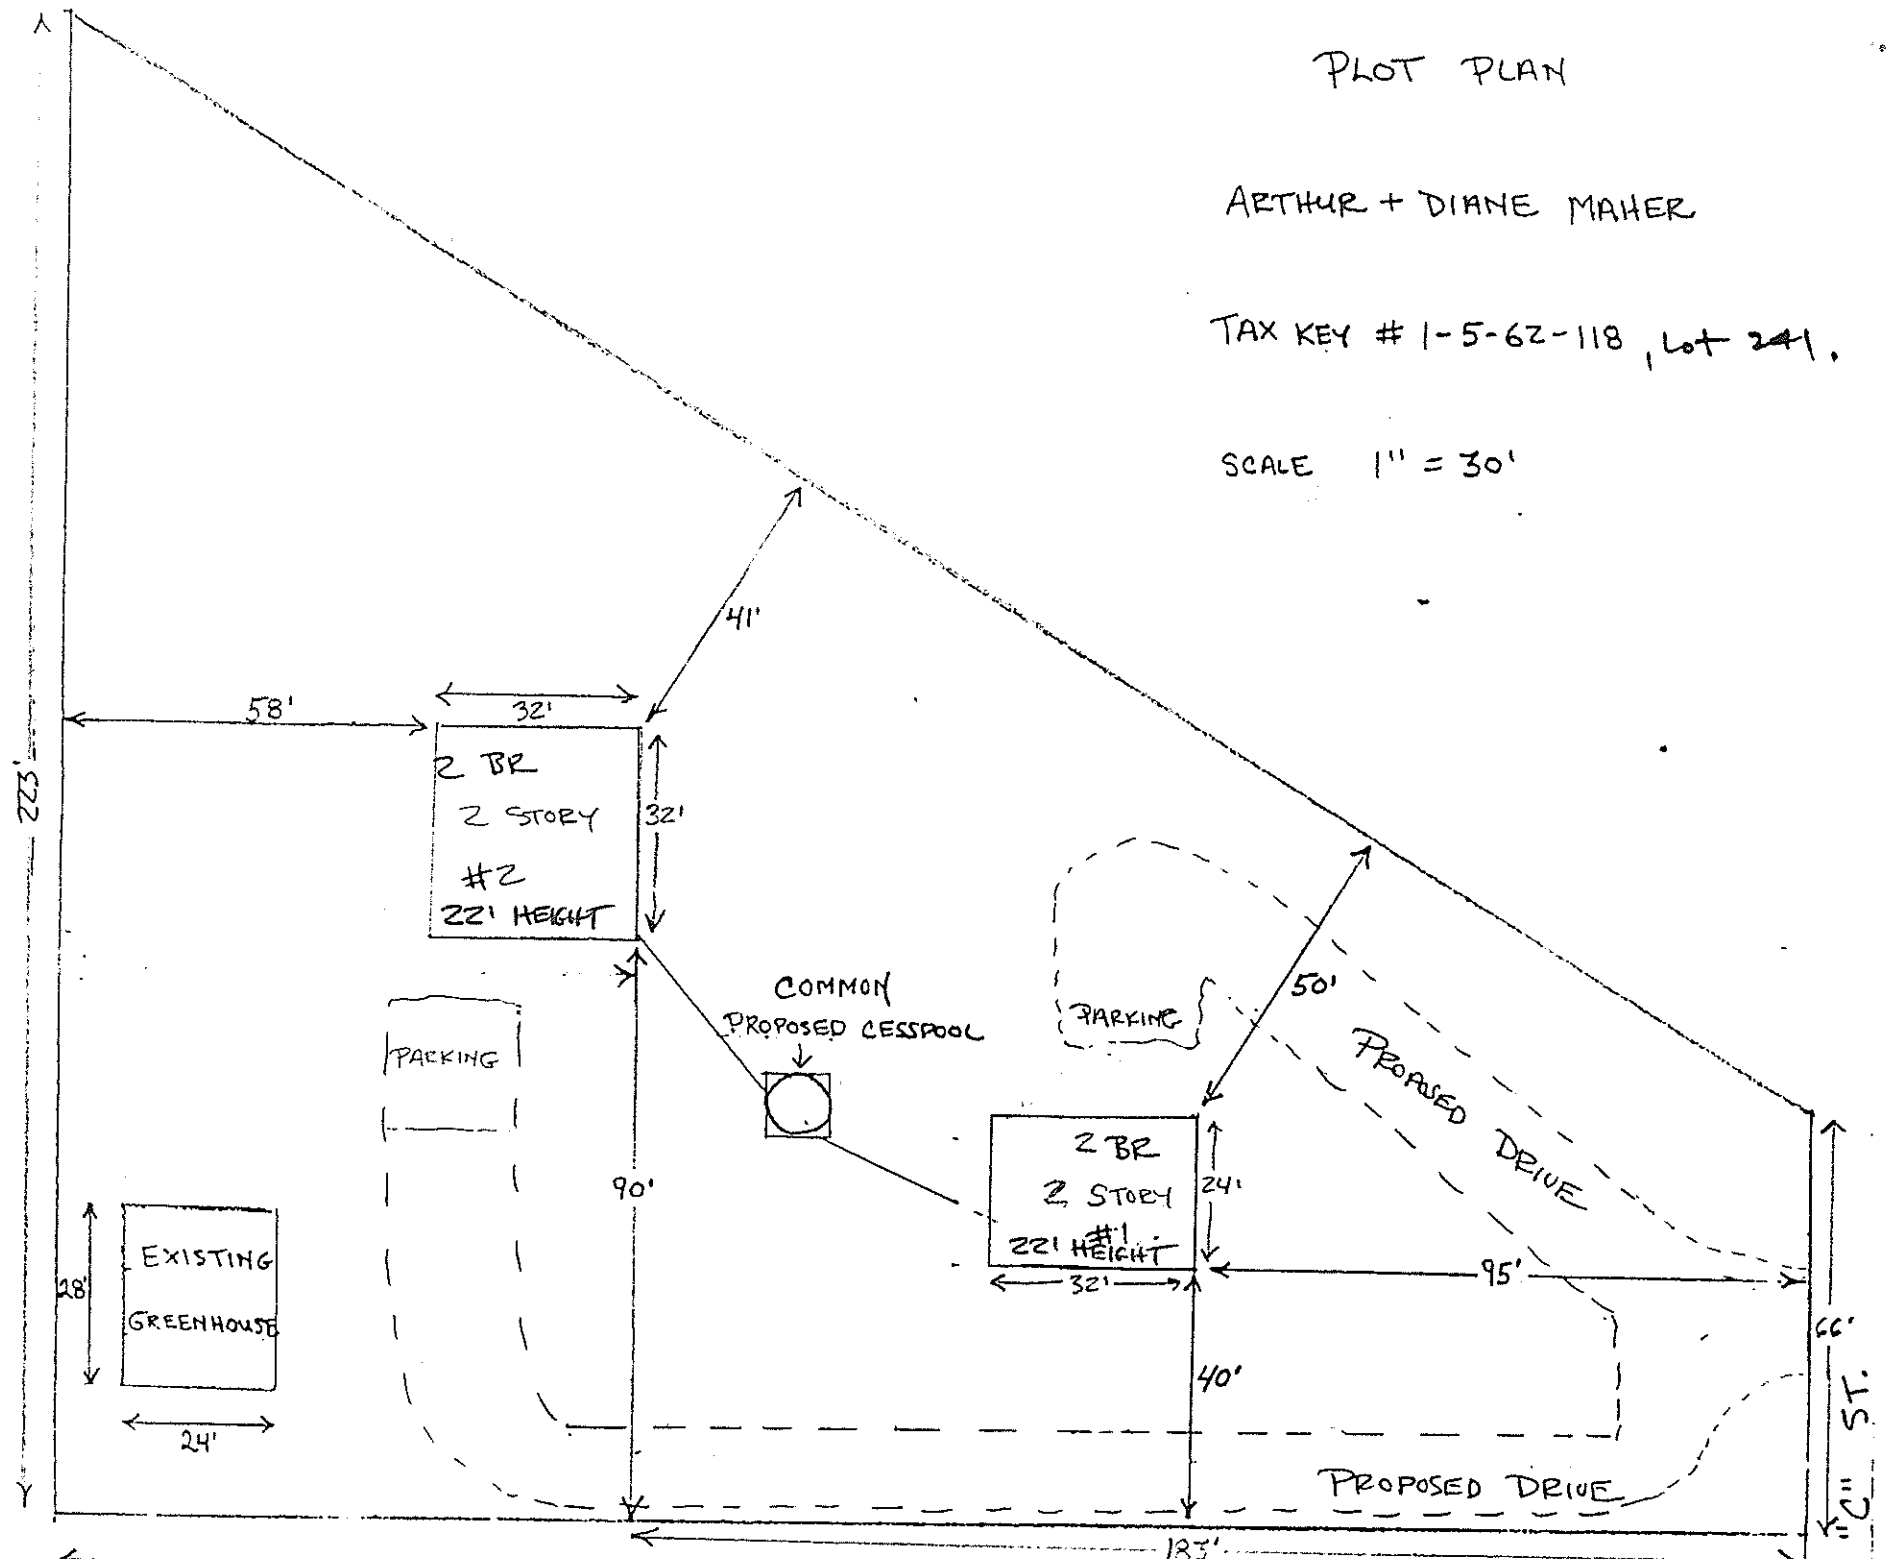 PLOT PLAN
ARTHUR + DIANE MAHER
TAX KEY # 1-5-62-118, Lot 241.
SCALE 1" = 30'
41'
58'
32'
2 BR
2 STORY
#2
22' HEIGHT
32'
223'
COMMON
PROPOSED CESSPOOL
PARKING
50'
PARKING
PROPOSED DRIVE
2 BR
2 STORY
#1
22' HEIGHT
24'
32'
95'
90'
EXISTING
GREENHOUSE
28'
24'
40'
66'
"C" ST.
PROPOSED DRIVE
183'